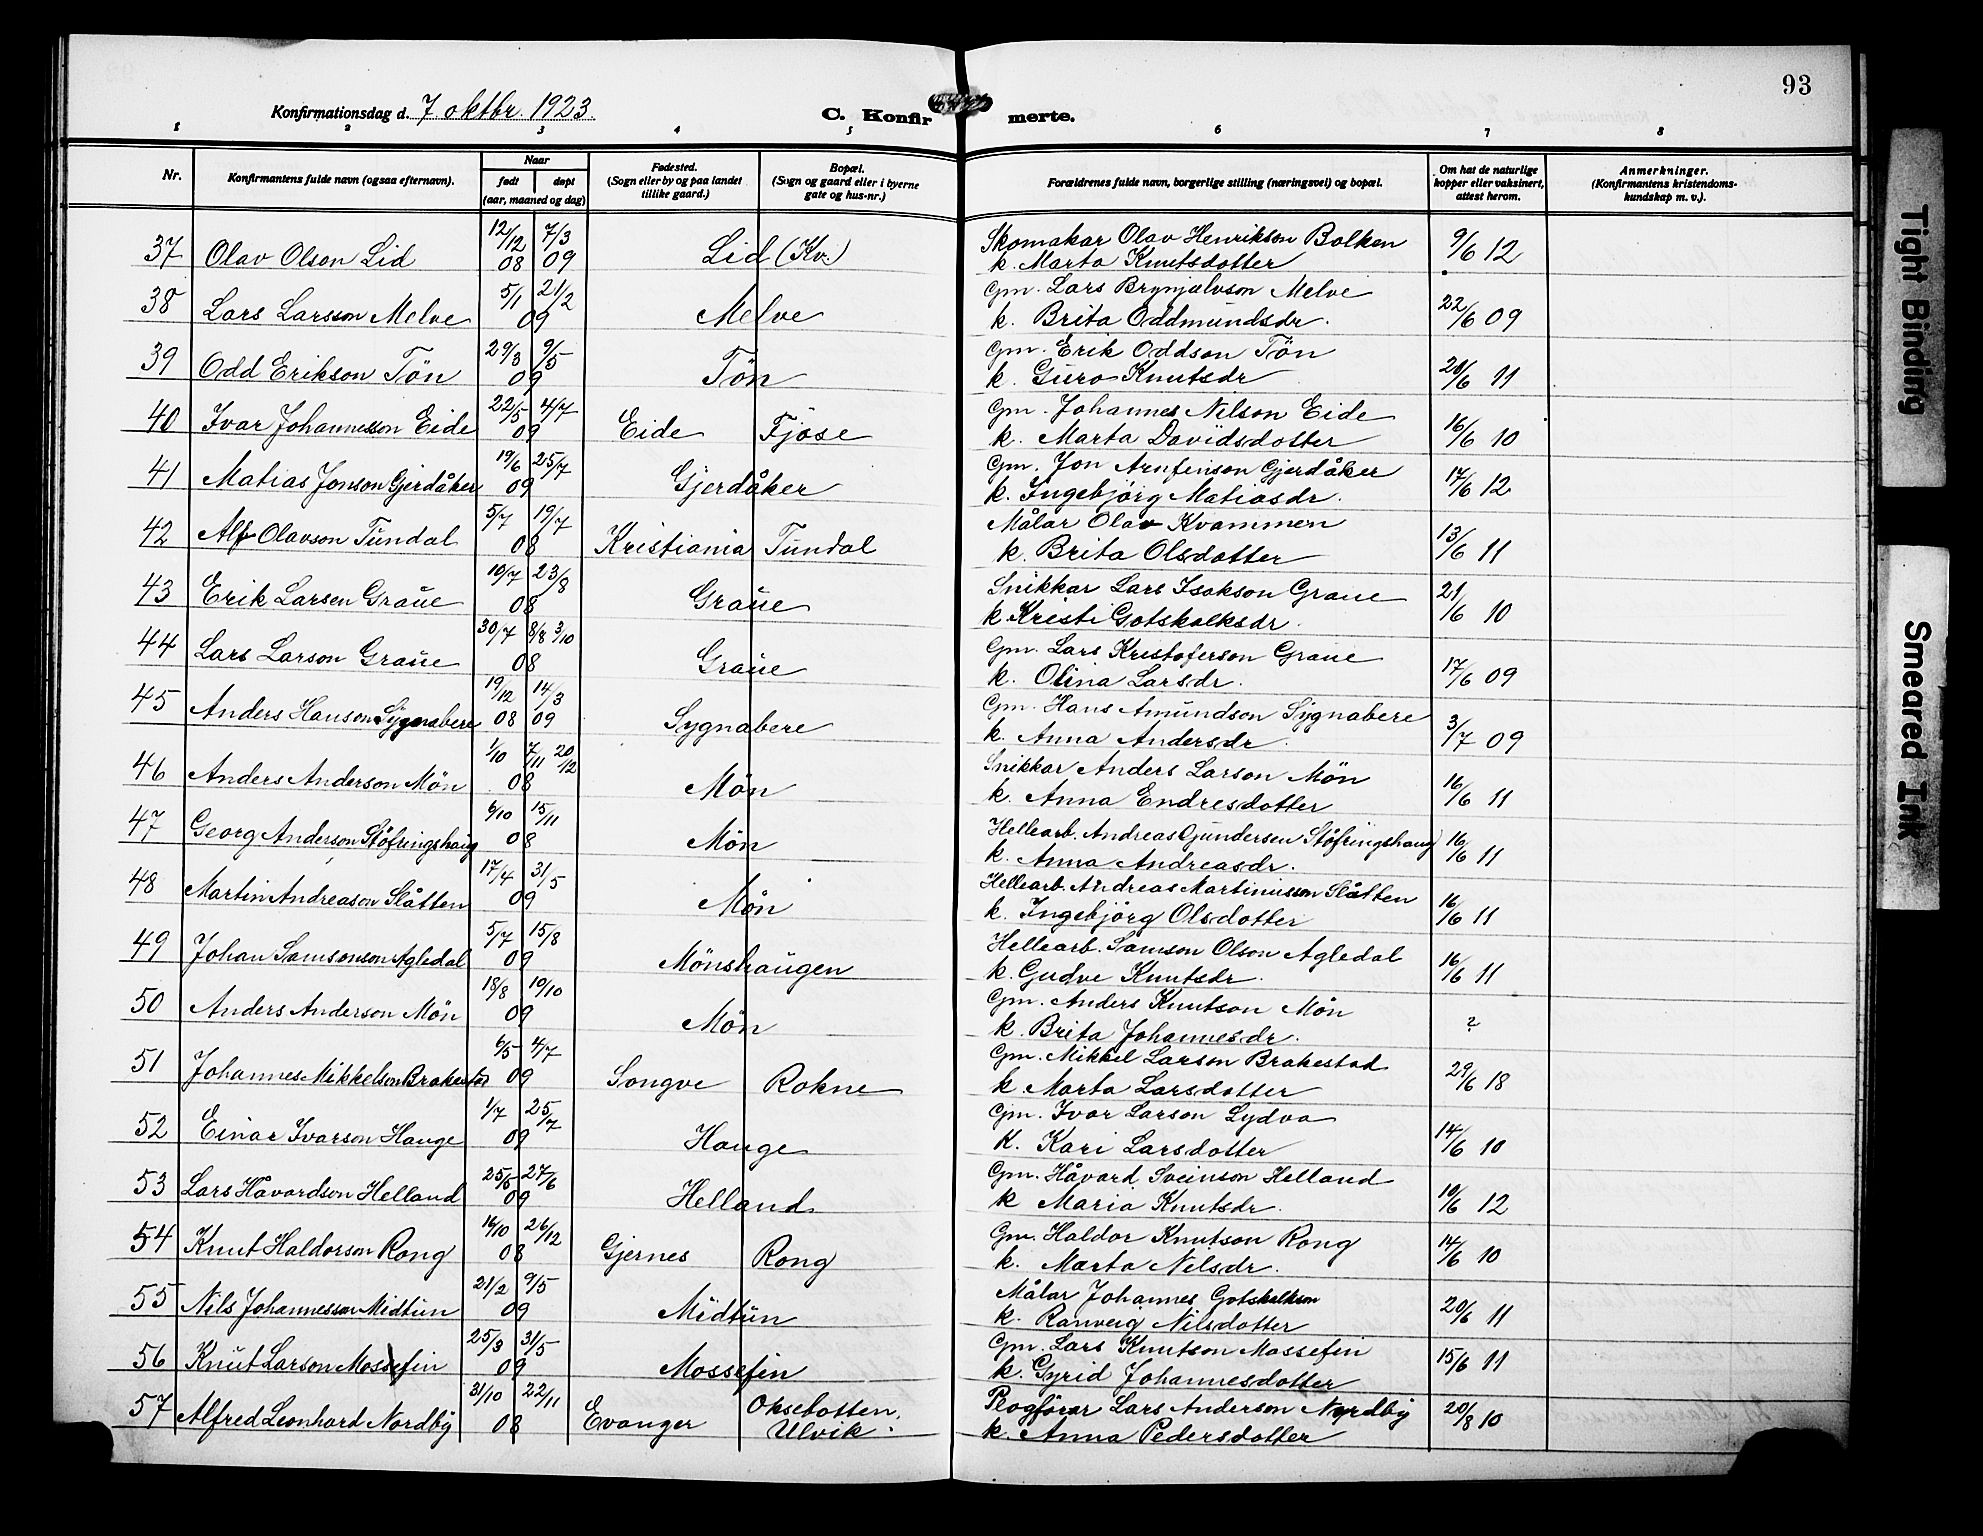 93
Konfirmationsdag d. 7. oktbr. 1923.
C. Konfirmerte.
1 2 3 4 5 6 7 8
Nr. Konfirmantens fulde navn (ogsaa efternavn). Naar født døpt (aar, maaned og dag) Fødested. (Sogn eller by og paa landet tillike gaard.) Bopæl. (Sogn og gaard eller i byerne gate og hus-nr.) Forældrenes fulde navn, borgerlige stilling (næringsvei) og bopæl. Om hat de naturlige kopper eller vaksinert, attest herom. Anmerkninger. (Konfirmantens kristendomskundskap m. v.).
37 Olav Olson Lid 12/12 08 7/3 09 Lid (Kv.) Skomakar Olav Henrikson Bolken 9/6 12
k. Marta Knutsdotter
38 Lars Larsson Melve 5/1 21/2 09 Melve Gm. Lars Brynjulvson Melve 22/6 09
k. Brita Oddmundsdr.
39 Odd Erikson Tön 29/3 9/5 09 Tön Gm. Erik Oddson Tön 28/6 11
k. Guro Knutsdr
40 Ivar Johannesson Eide 22/5 4/7 09 Eide Fjose Gm. Johannes Nilson Eide 16/6 10
k. Marta Davidsdotter
41 Matias Jonson Gjerdåker 19/6 25/7 09 Gjerdåker Gm. Jon Arnfinson Gjerdåker 17/6 12
k. Ingebjörg Matiasdr.
42 Alf Olavson Tundal 5/7 19/7 08 Kristiania Tundal Målar Olav Kvammen 13/6 11
k. Brita Olsdotter
43 Erik Larsen Graue 10/7 23/8 08 Graue Snikkar Lars Isakson Graue 21/6 10
k Kristi Gotskalksdr.
44 Lars Larson Graue 30/7 8/8 3/10 08 Graue Gm. Lars Kristoferson Graue 17/6 09
k. Olina Larsdr.
45 Anders Hanson Sygnabere 19/12 08 14/3 09 Sygnabere Gm. Hans Amundson Sygnabere 3/7 09
k. Anna Andersdr.
46 Anders Anderson Mön 1/10 7/11 20/12 08 Mön Snikkar Anders Larson Mön 16/6 11
k. Anna Endresdotter
47 Georg Anderson Stöfringshaug 6/10 15/11 08 Mön Hellearb. Andreas Gundersen Stöfringshaug 16/6 11
k. Anna Andreasdr.
48 Martin Andreason Slåtten 17/4 31/5 09 Mön Hellearb. Andreas Martinusson Slåtten 16/6 11
k. Ingebjörg Olsdotter
49 Johan Samsonson Agledal 5/7 15/8 09 Mönshaugen Hellearb. Samson Olson Agledal 16/6 11
k. Gudve Knutsdr.
50 Anders Anderson Mön 18/8 10/10 09 Mön Gm. Anders Knutson Mön ?
k. Brita Johannesdr.
51 Johannes Mikkelson Brakestad 6/5 4/7 09 Songve Rokne Gm. Mikkel Larson Brakestad 29/6 18
k. Marta Larsdotter
52 Einar Ivarson Hauge 1/7 25/7 09 Hauge Gm. Ivar Larson Lydva 14/6 10
K. Kari Larsdotter
53 Lars Håvardson Helland 25/5 27/6 09 Helland Gm. Håvard Sveinson Helland 10/6 12
k Maria Knutsdr.
54 Knut Haldorson Rong 16/10 26/12 08 Gjernes Rong Gm. Haldor Knutson Rong 14/6 10
k. Marta Nilsdr.
55 Nils Johannesson Midtun 21/2 9/5 09 Midtun Målar Johannes Gotskalkson 20/6 11
k. Ranveig Nilsdotter
56 Knut Larson Mossefin 25/3 31/5 09 Mossefin Gm. Lars Knutson Mossefin 15/6 11
k. Gyrid Johannesdotter
57 Alfred Leonhard Nordby 31/10 22/11 08 Evanger Oksebotten, Ulvik. Rogförar Lars Anderson Nordby 20/8 10
k. Anna Pedersdotter
Tight Binding
Smeared Ink